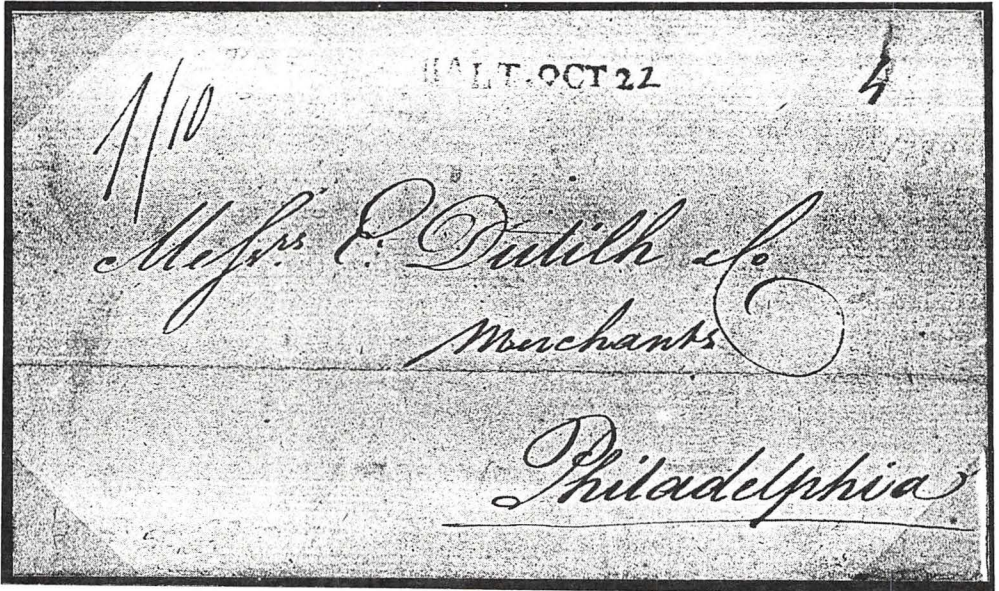 BALT.OCT 22
4
1/10
Messrs. E. Dutilh & Co
Merchants
Philadelphia